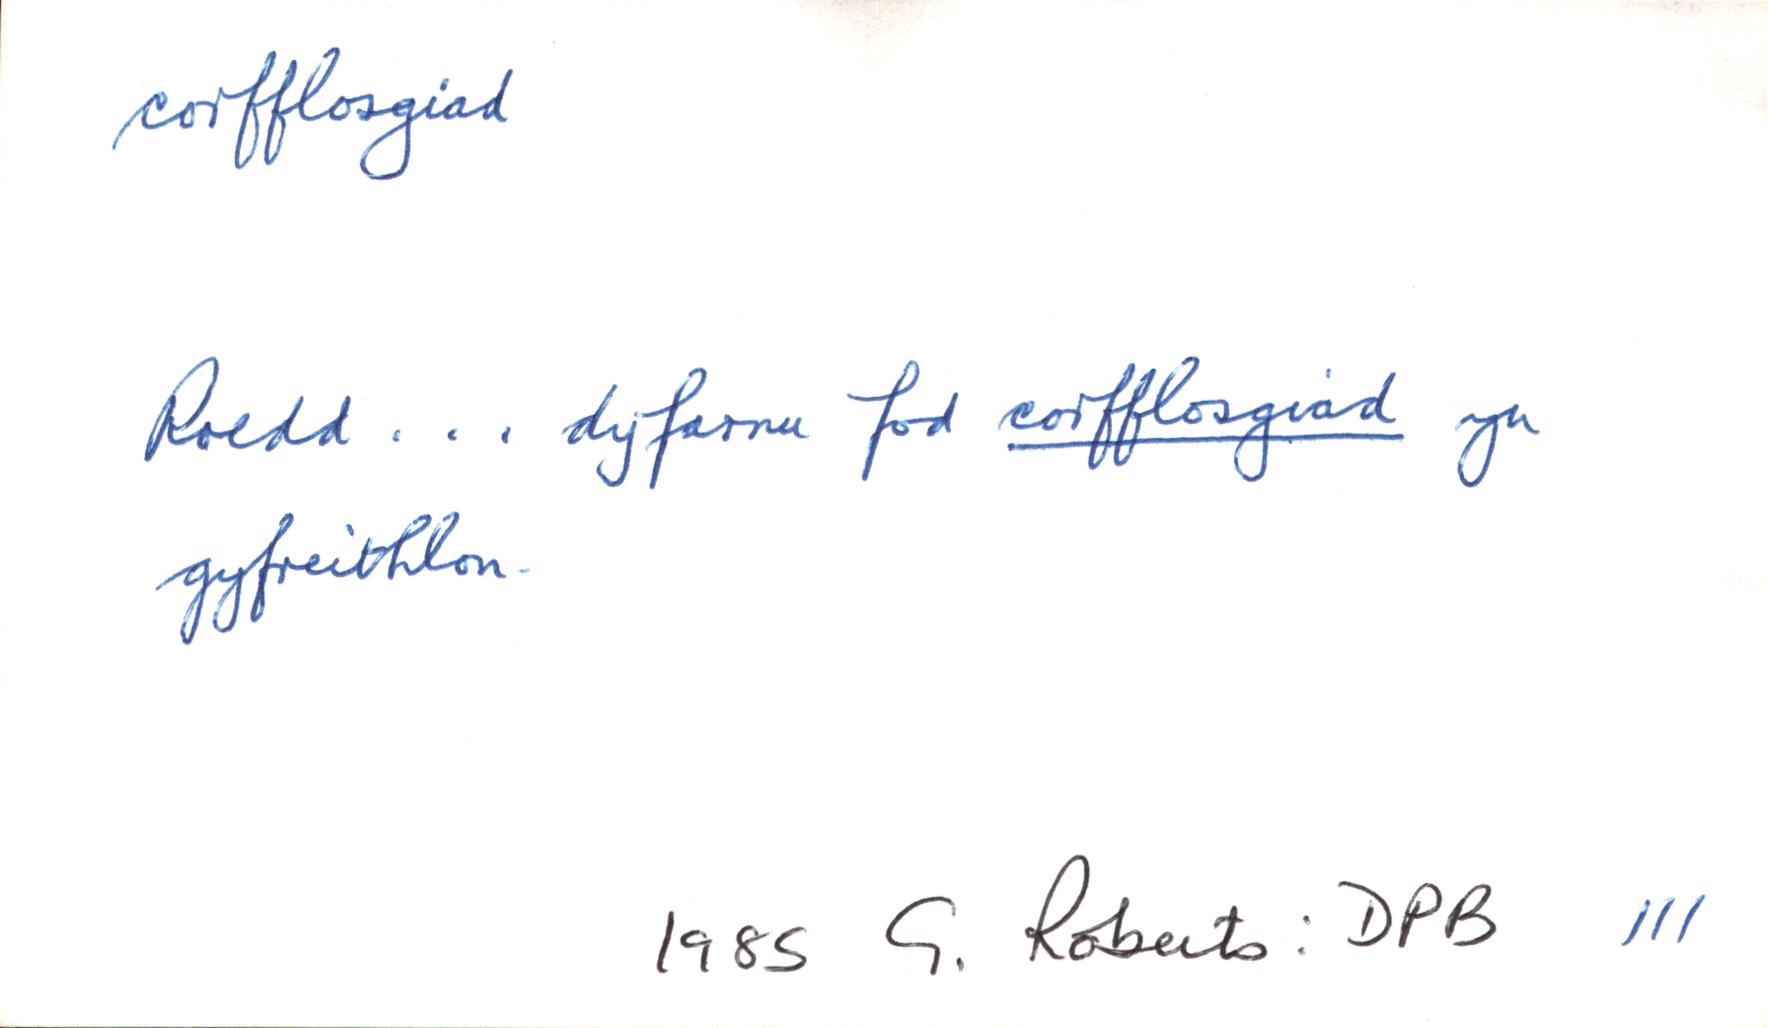 corfflosgiad
Roedd . . . dyfarnu fod corfflosgiad yn
gyfreithlon.
1985 G. Roberts : DPB 111